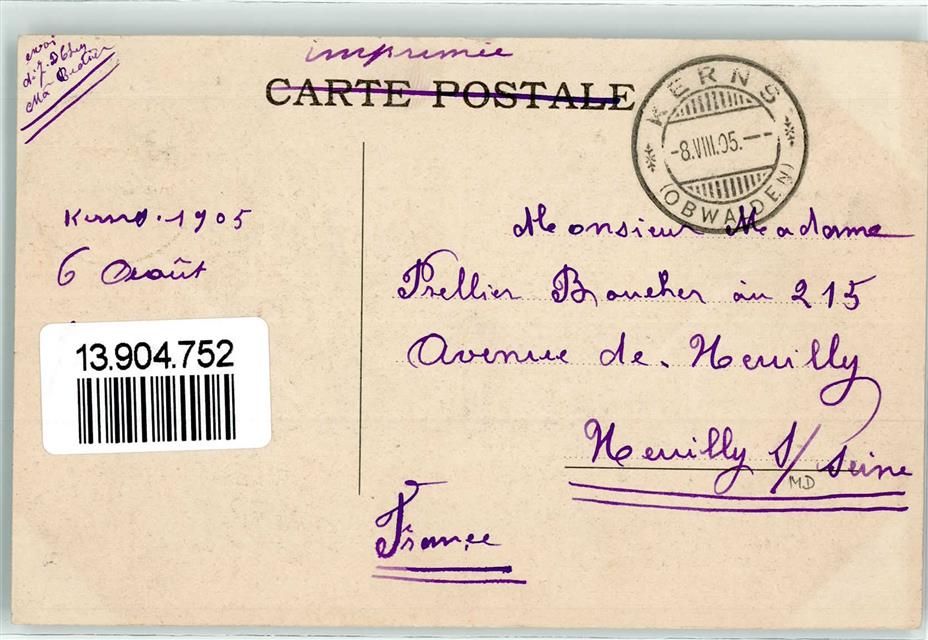 envoi
imprimée
CARTE POSTALE
KERNS
-8.VIII.05.--
(OBWALDEN)
Kerns. 1905
6 Août
13.904.752
Monsieur Madame
Prellier Boucher au 215
Avenue de. Neuilly
Neuilly s/ Seine
MD
France